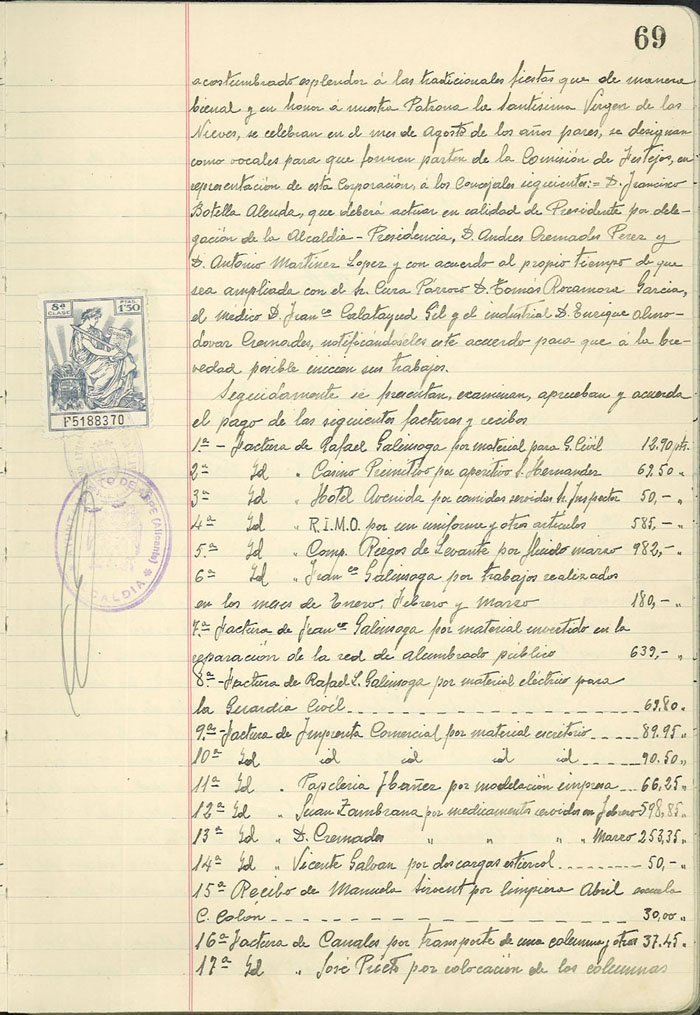 69
acostumbrado esplendor á las tradicionales fiestas que de manera
bienal y en honor á nuestra Patrona la Santísima Virgen de las
Nieves, se celebran en el mes de Agosto de los años pares, se designan
como vocales para que formen parten de la Comisión de Festejos, en
representación de esta Corporación, á los Concejales siguientes:= D. Francisco
Botella Alenda, que deberá actuar en calidad de Presidente por dele-
gación de la Alcaldia-Presidencia, D. Andres Cremades Perez y
D. Antonio Martínez Lopez y con acuerdo al propio tiempo de que
sea ampliada con el Sr. Cura Parroco D. Tomás Rocamora Garcia,
el medico D. Franco Calatayud Gil y el industrial D. Enrique Almo-
dovar Cremades, notificándoseles este acuerdo para que á la bre-
vedad posible inicien sus trabajos.
Seguidamente se presentan, examinan, aprueban y acuerda
el pago de las siguientes facturas y recibos
1ª - Factura de Rafael Galinsoga por material para G. Civil 12.90 pts.
2ª Id " Casino Primitivo por aperitivo S. Hernandez 69.50 "
3ª Id " Hotel Avenida por comidas servidas Sr. Inspector 50,- "
4ª Id " R.I.M.O. por un uniforme y otros articulos 585,- "
5ª Id " Comp. Riegos de Levante por fluido marzo 982,- "
6ª Id " Franco Galinsoga por trabajos realizados
en los meses de Enero, Febrero y Marzo 180,- "
7ª Factura de Franco Galinsoga por material invertido en la
reparación de la red de alumbrado público 639,- "
8ª - Factura de Rafael L. Galinsoga por material electrico para
la Guardia Civil 69.80 "
9ª - Factura de Imprenta Comercial por material escritorio 89.95 "
10ª Id id id id id 90.50 "
11ª Id " Papeleria Ibañez por modelación impresa 66,25 "
12ª Id " Juan Zambrana por medicamentos servidos en febrero 598,85 "
13ª Id " D. Cremades " " " " Marzo 253,35 "
14ª Id " Vicente Galvan por dos cargas estiercol 50,- "
15ª Recibo de Manuela Sirvent por limpieza Abril escuela
C. Colón 30,00 "
16ª Factura de Canales por transporte de una columna y otros 37.45 "
17ª Id " José Prieto por colocación de las columnas
8ª CLASE
PTAS 1'50
F5188370
AYUNTAMIENTO DE ASPE (Alicante)
ALCALDIA